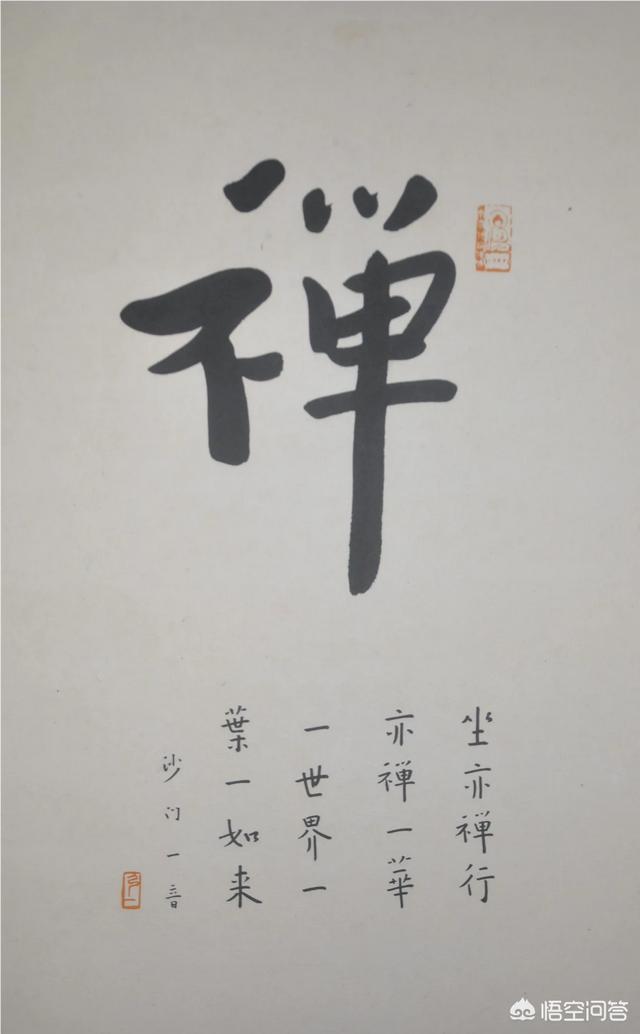 禪
坐亦禪行
亦禪一華
一世界一
葉一如来
沙门一音
悟空问答